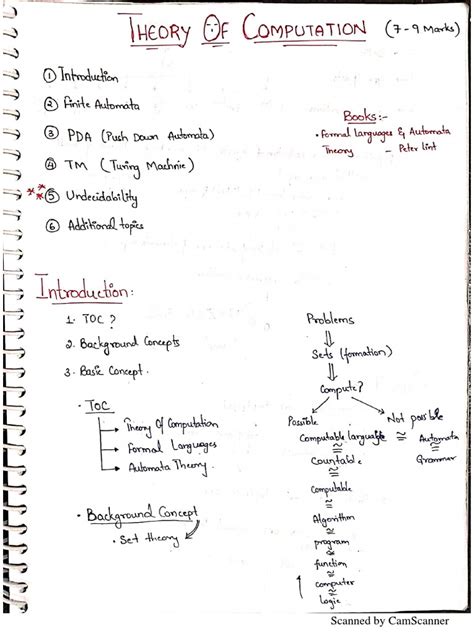 THEORY OF COMPUTATION (7-9 Marks)
① Introduction
② Finite Automata
③ PDA (Push Down Automata)
④ TM (Turing Machnie)
** ⑤ Undecidability
⑥ Additional topics
Books:-
• Formal Languages & Automata
Theory - Peter Lint
Introduction:
1. TOC ?
2. Background Concepts
3. Basic Concept.
• TOC
→ Theory Of Computation
→ Formal Languages
→ Automata Theory.
• Background Concept
• Set theory
Problems
⇓
Sets (formation)
⇓
Compute?
Possible Not possible
Computable language ≅ Automata
≅ ≅
Countable Grammar
≅
Computable
≅
Algorithm
≅
program
≅
function
≅
↑ computer
≅
Logic
Scanned by CamScanner